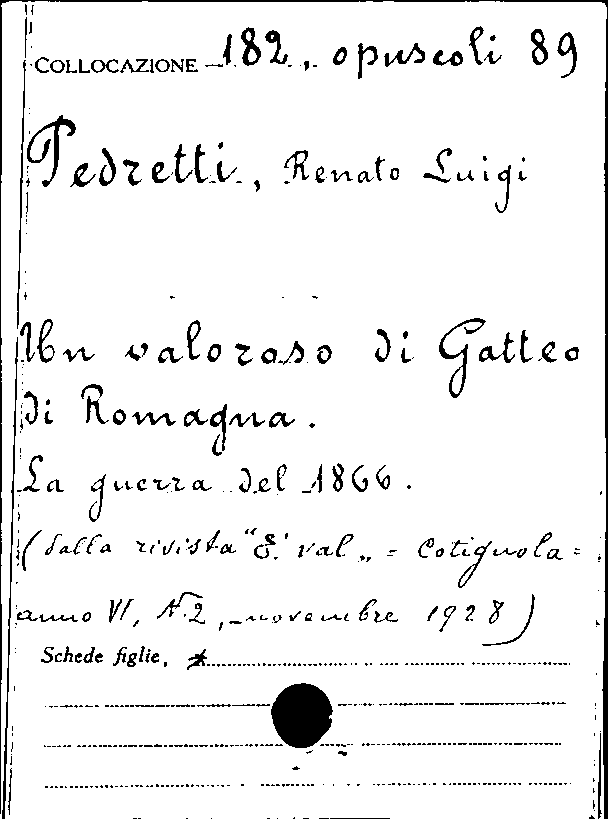 COLLOCAZIONE 182, opuscoli 89
Pedretti, Renato Luigi
Un valoroso di Gatteo
di Romagna.
La guerra del 1866.
(dalla rivista "E' val„ = Cotignola =
anno VI, N. 2, novembre 1928)
Schede figlie, *